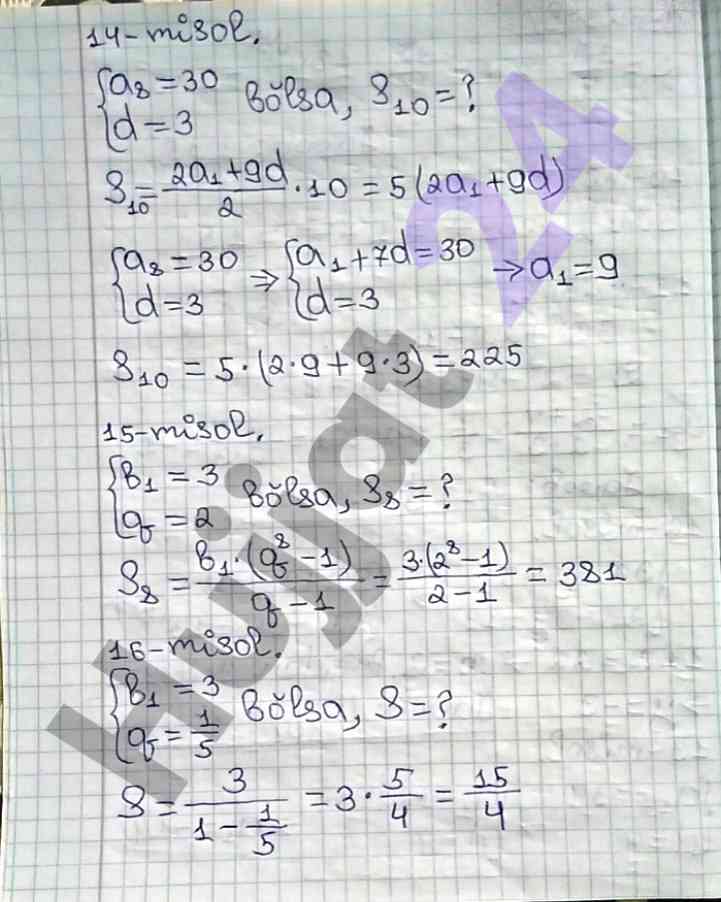 14-misol.
{a₈ = 30
{d = 3 bŏlsa, S₁₀ = ?
S₁₀ = (2a₁ + 9d)/2 · 10 = 5(2a₁ + 9d)
{a₈ = 30 ⇒ {a₁ + 7d = 30 → a₁ = 9
{d = 3 {d = 3
S₁₀ = 5·(2·9 + 9·3) = 225
15-misol.
{b₁ = 3
{q = 2 bŏlsa, S₈ = ?
S₈ = b₁·(q⁸ - 1)/(q - 1) = 3·(2⁸ - 1)/(2 - 1) = 381
16-misol.
{b₁ = 3
{q = 1/5 bŏlsa, S = ?
S = 3/(1 - 1/5) = 3 · 5/4 = 15/4
Hujjat 24